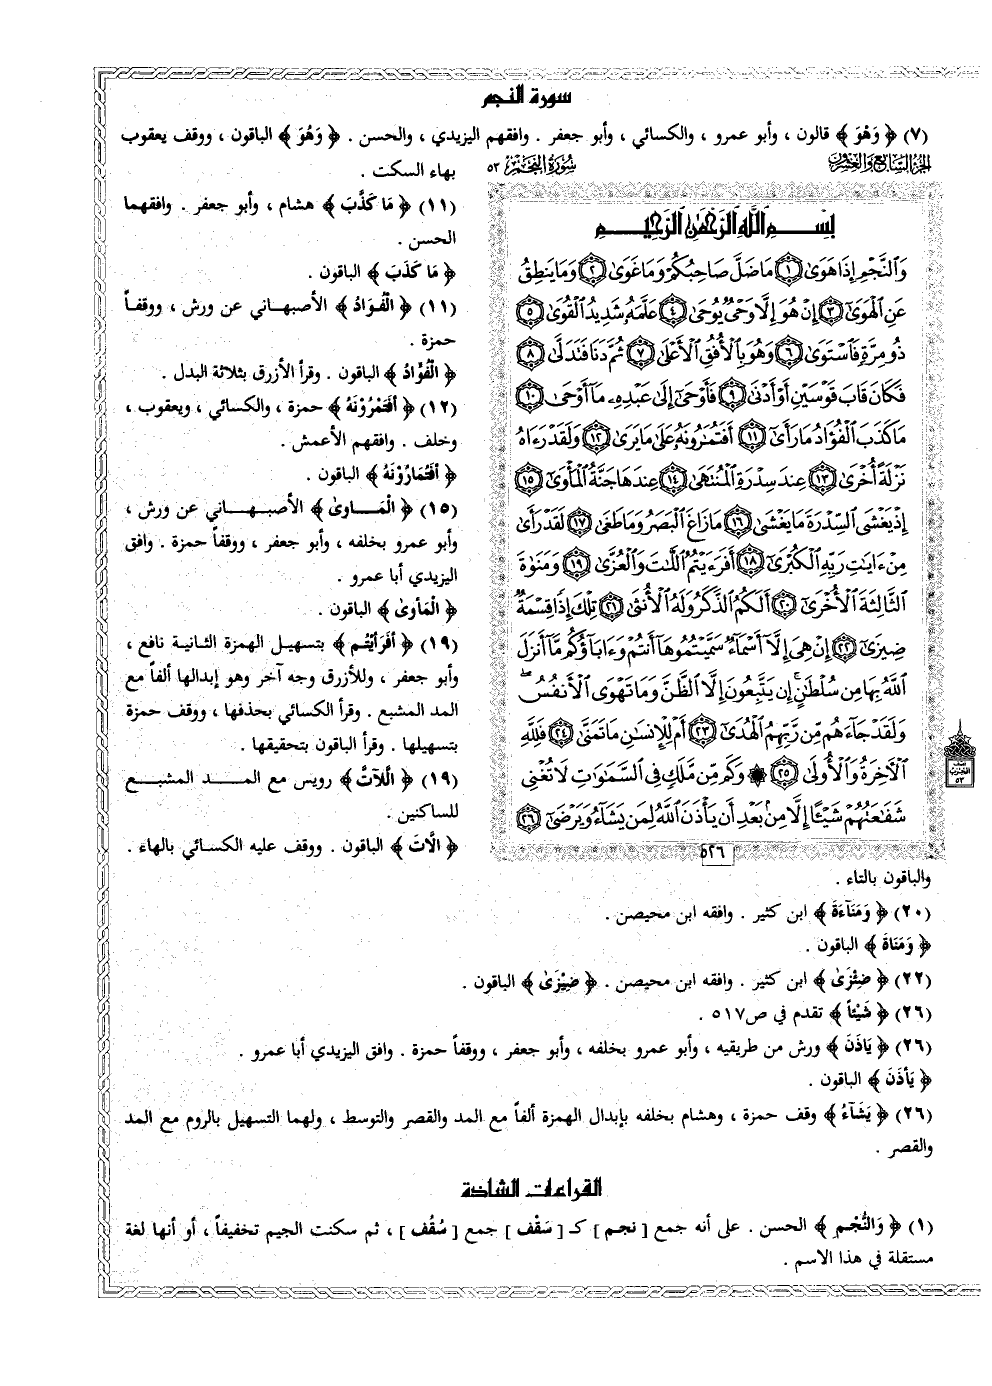 سورة النجم
(٧) ﴿ وَهْوَ ﴾ قالون ، وأبو عمرو ، والكسائي ، وأبو جعفر . وافقهم اليزيدي ، والحسن . ﴿ وَهُوَ ﴾ الباقون ، ووقف يعقوب
بهاء السكت .
الجزء السابع والعشرون
سُورَةُ النَّجْمِ ٥٣
بِسْمِ اللَّهِ الرَّحْمَٰنِ الرَّحِيمِ
وَالنَّجْمِ إِذَا هَوَىٰ ١ مَا ضَلَّ صَاحِبُكُمْ وَمَا غَوَىٰ ٢ وَمَا يَنطِقُ
عَنِ الْهَوَىٰ ٣ إِنْ هُوَ إِلَّا وَحْيٌ يُوحَىٰ ٤ عَلَّمَهُ شَدِيدُ الْقُوَىٰ ٥
ذُو مِرَّةٍ فَاسْتَوَىٰ ٦ وَهُوَ بِالْأُفُقِ الْأَعْلَىٰ ٧ ثُمَّ دَنَا فَتَدَلَّىٰ ٨
فَكَانَ قَابَ قَوْسَيْنِ أَوْ أَدْنَىٰ ٩ فَأَوْحَىٰ إِلَىٰ عَبْدِهِ مَا أَوْحَىٰ ١٠
مَا كَذَبَ الْفُؤَادُ مَا رَأَىٰ ١١ أَفَتُمَارُونَهُ عَلَىٰ مَا يَرَىٰ ١٢ وَلَقَدْ رَءَاهُ
نَزْلَةً أُخْرَىٰ ١٣ عِندَ سِدْرَةِ الْمُنتَهَىٰ ١٤ عِندَهَا جَنَّةُ الْمَأْوَىٰ ١٥
إِذْ يَغْشَى السِّدْرَةَ مَا يَغْشَىٰ ١٦ مَا زَاغَ الْبَصَرُ وَمَا طَغَىٰ ١٧ لَقَدْ رَأَىٰ
مِنْ ءَايَٰتِ رَبِّهِ الْكُبْرَىٰ ١٨ أَفَرَءَيْتُمُ اللَّٰتَ وَالْعُزَّىٰ ١٩ وَمَنَوٰةَ
الثَّالِثَةَ الْأُخْرَىٰ ٢٠ أَلَكُمُ الذَّكَرُ وَلَهُ الْأُنثَىٰ ٢١ تِلْكَ إِذًا قِسْمَةٌ
ضِيزَىٰ ٢٢ إِنْ هِيَ إِلَّا أَسْمَاءٌ سَمَّيْتُمُوهَا أَنتُمْ وَءَابَاؤُكُم مَّا أَنزَلَ
اللَّهُ بِهَا مِن سُلْطَٰنٍ إِن يَتَّبِعُونَ إِلَّا الظَّنَّ وَمَا تَهْوَى الْأَنفُسُ
وَلَقَدْ جَاءَهُم مِّن رَّبِّهِمُ الْهُدَىٰ ٢٣ أَمْ لِلْإِنسَٰنِ مَا تَمَنَّىٰ ٢٤ فَلِلَّهِ
الْآخِرَةُ وَالْأُولَىٰ ٢٥ ۞ وَكَم مِّن مَّلَكٍ فِي السَّمَٰوَٰتِ لَا تُغْنِي
شَفَٰعَتُهُمْ شَيْـًٔا إِلَّا مِن بَعْدِ أَن يَأْذَنَ اللَّهُ لِمَن يَشَاءُ وَيَرْضَىٰ ٢٦
٥٢٦
(١١) ﴿ مَا كَذَّبَ ﴾ هشام ، وأبو جعفر . وافقهما
الحسن .
﴿ مَا كَذَبَ ﴾ الباقون .
(١١) ﴿ الْفُوَادُ ﴾ الأصبهاني عن ورش ، ووقفاً
حمزة .
﴿ الْفُؤَادُ ﴾ الباقون . وقرأ الأزرق بثلاثة البدل .
(١٢) ﴿ أَفَتَمْرُونَهُ ﴾ حمزة ، والكسائي ، ويعقوب ،
وخلف . وافقهم الأعمش .
﴿ أَفَتُمَارُونَهُ ﴾ الباقون .
(١٥) ﴿ الْمَاوىٰ ﴾ الأصبهاني عن ورش ،
وأبو عمرو بخلفه ، وأبو جعفر ، ووقفاً حمزة . وافق
اليزيدي أبا عمرو .
﴿ الْمَأوىٰ ﴾ الباقون .
(١٩) ﴿ أَفَرَأَيْتُم ﴾ بتسهيل الهمزة الثانية نافع ،
وأبو جعفر ، وللأزرق وجه آخر وهو إبدالها ألفاً مع
المد المشبع . وقرأ الكسائي بحذفها ، ووقف حمزة
بتسهيلها . وقرأ الباقون بتحقيقها .
(١٩) ﴿ اللَّآتَّ ﴾ رويس مع المد المشبع
للساكنين .
﴿ الَّاتَ ﴾ الباقون . ووقف عليه الكسائي بالهاء .
والباقون بالتاء .
(٢٠) ﴿ وَمَنَآءَةَ ﴾ ابن كثير . وافقه ابن محيصن .
﴿ وَمَنَاةَ ﴾ الباقون .
(٢٢) ﴿ ضِئْزَىٰ ﴾ ابن كثير . وافقه ابن محيصن . ﴿ ضِيْزَىٰ ﴾ الباقون .
(٢٦) ﴿ شَيْئاً ﴾ تقدم في ص٥١٧ .
(٢٦) ﴿ يَاذَنَ ﴾ ورش من طريقيه ، وأبو عمرو بخلفه ، وأبو جعفر ، ووقفاً حمزة . وافق اليزيدي أبا عمرو .
﴿ يَأذَنَ ﴾ الباقون .
(٢٦) ﴿ يَشَآءُ ﴾ وقف حمزة ، وهشام بخلفه بإبدال الهمزة ألفاً مع المد والقصر والتوسط ، ولهما التسهيل بالروم مع المد
والقصر .
القراءات الشاذة
(١) ﴿ وَالنُّجْمِ ﴾ الحسن . على أنه جمع [ نجم ] كـ [ سَقْف ] جمع [ سُقُف ] ، ثم سكنت الجيم تخفيفاً ، أو أنها لغة
مستقلة في هذا الاسم .